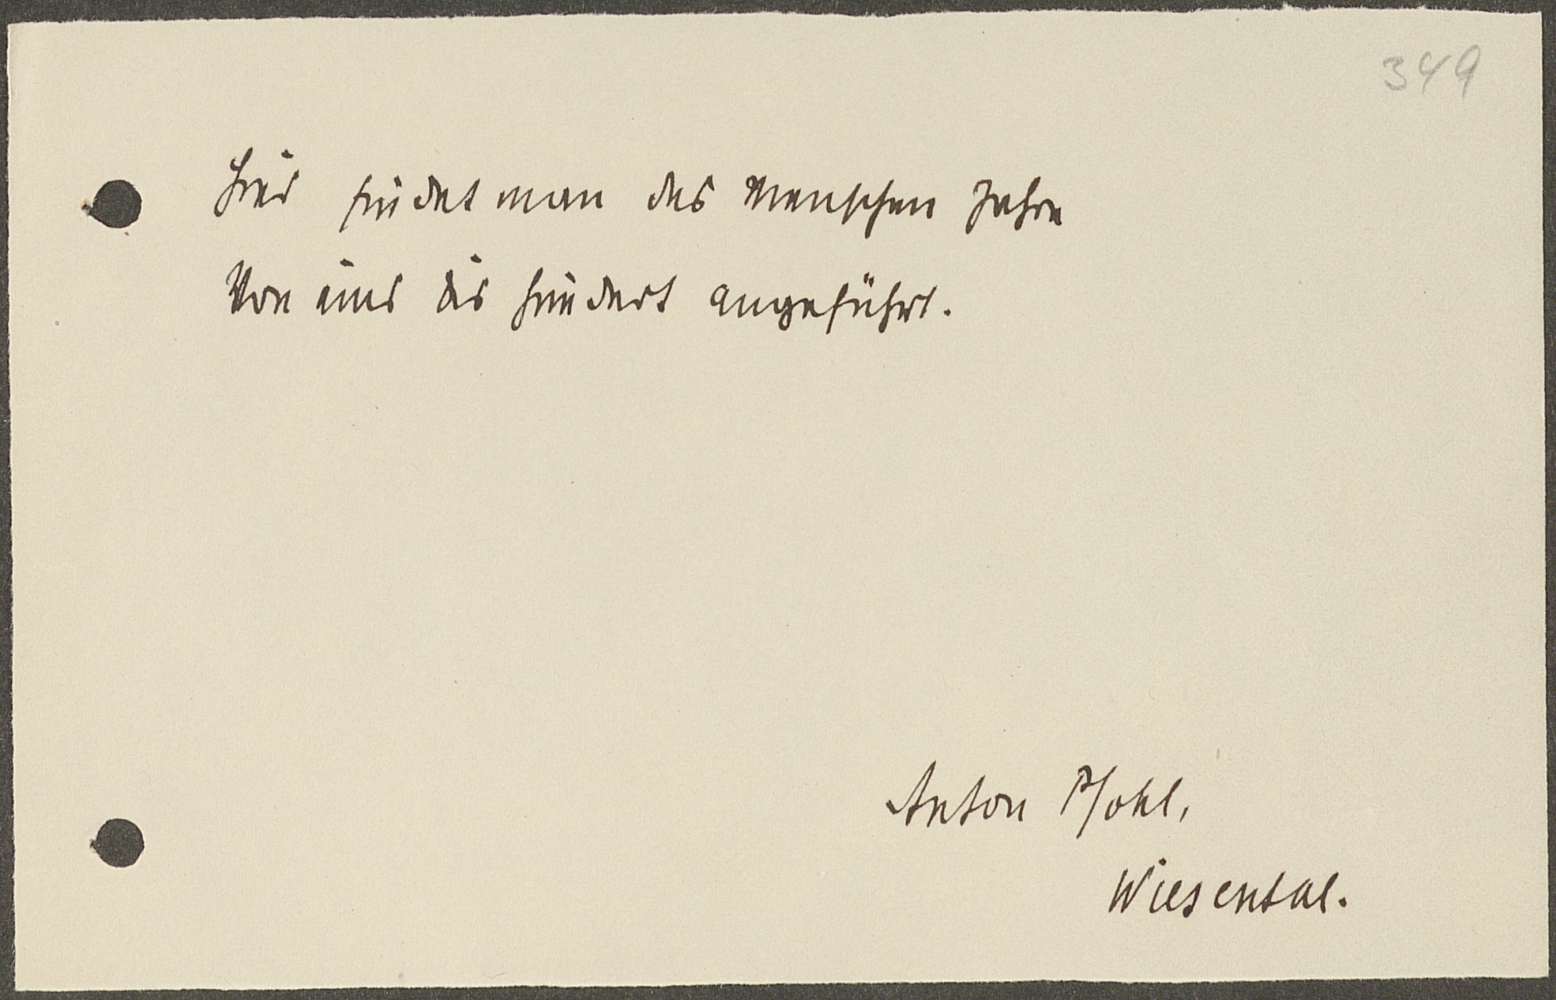 349
Hier findet man des Menschen Jahre
Von eins bis hundert angeführt.
Anton Pfohl,
Wiesental.